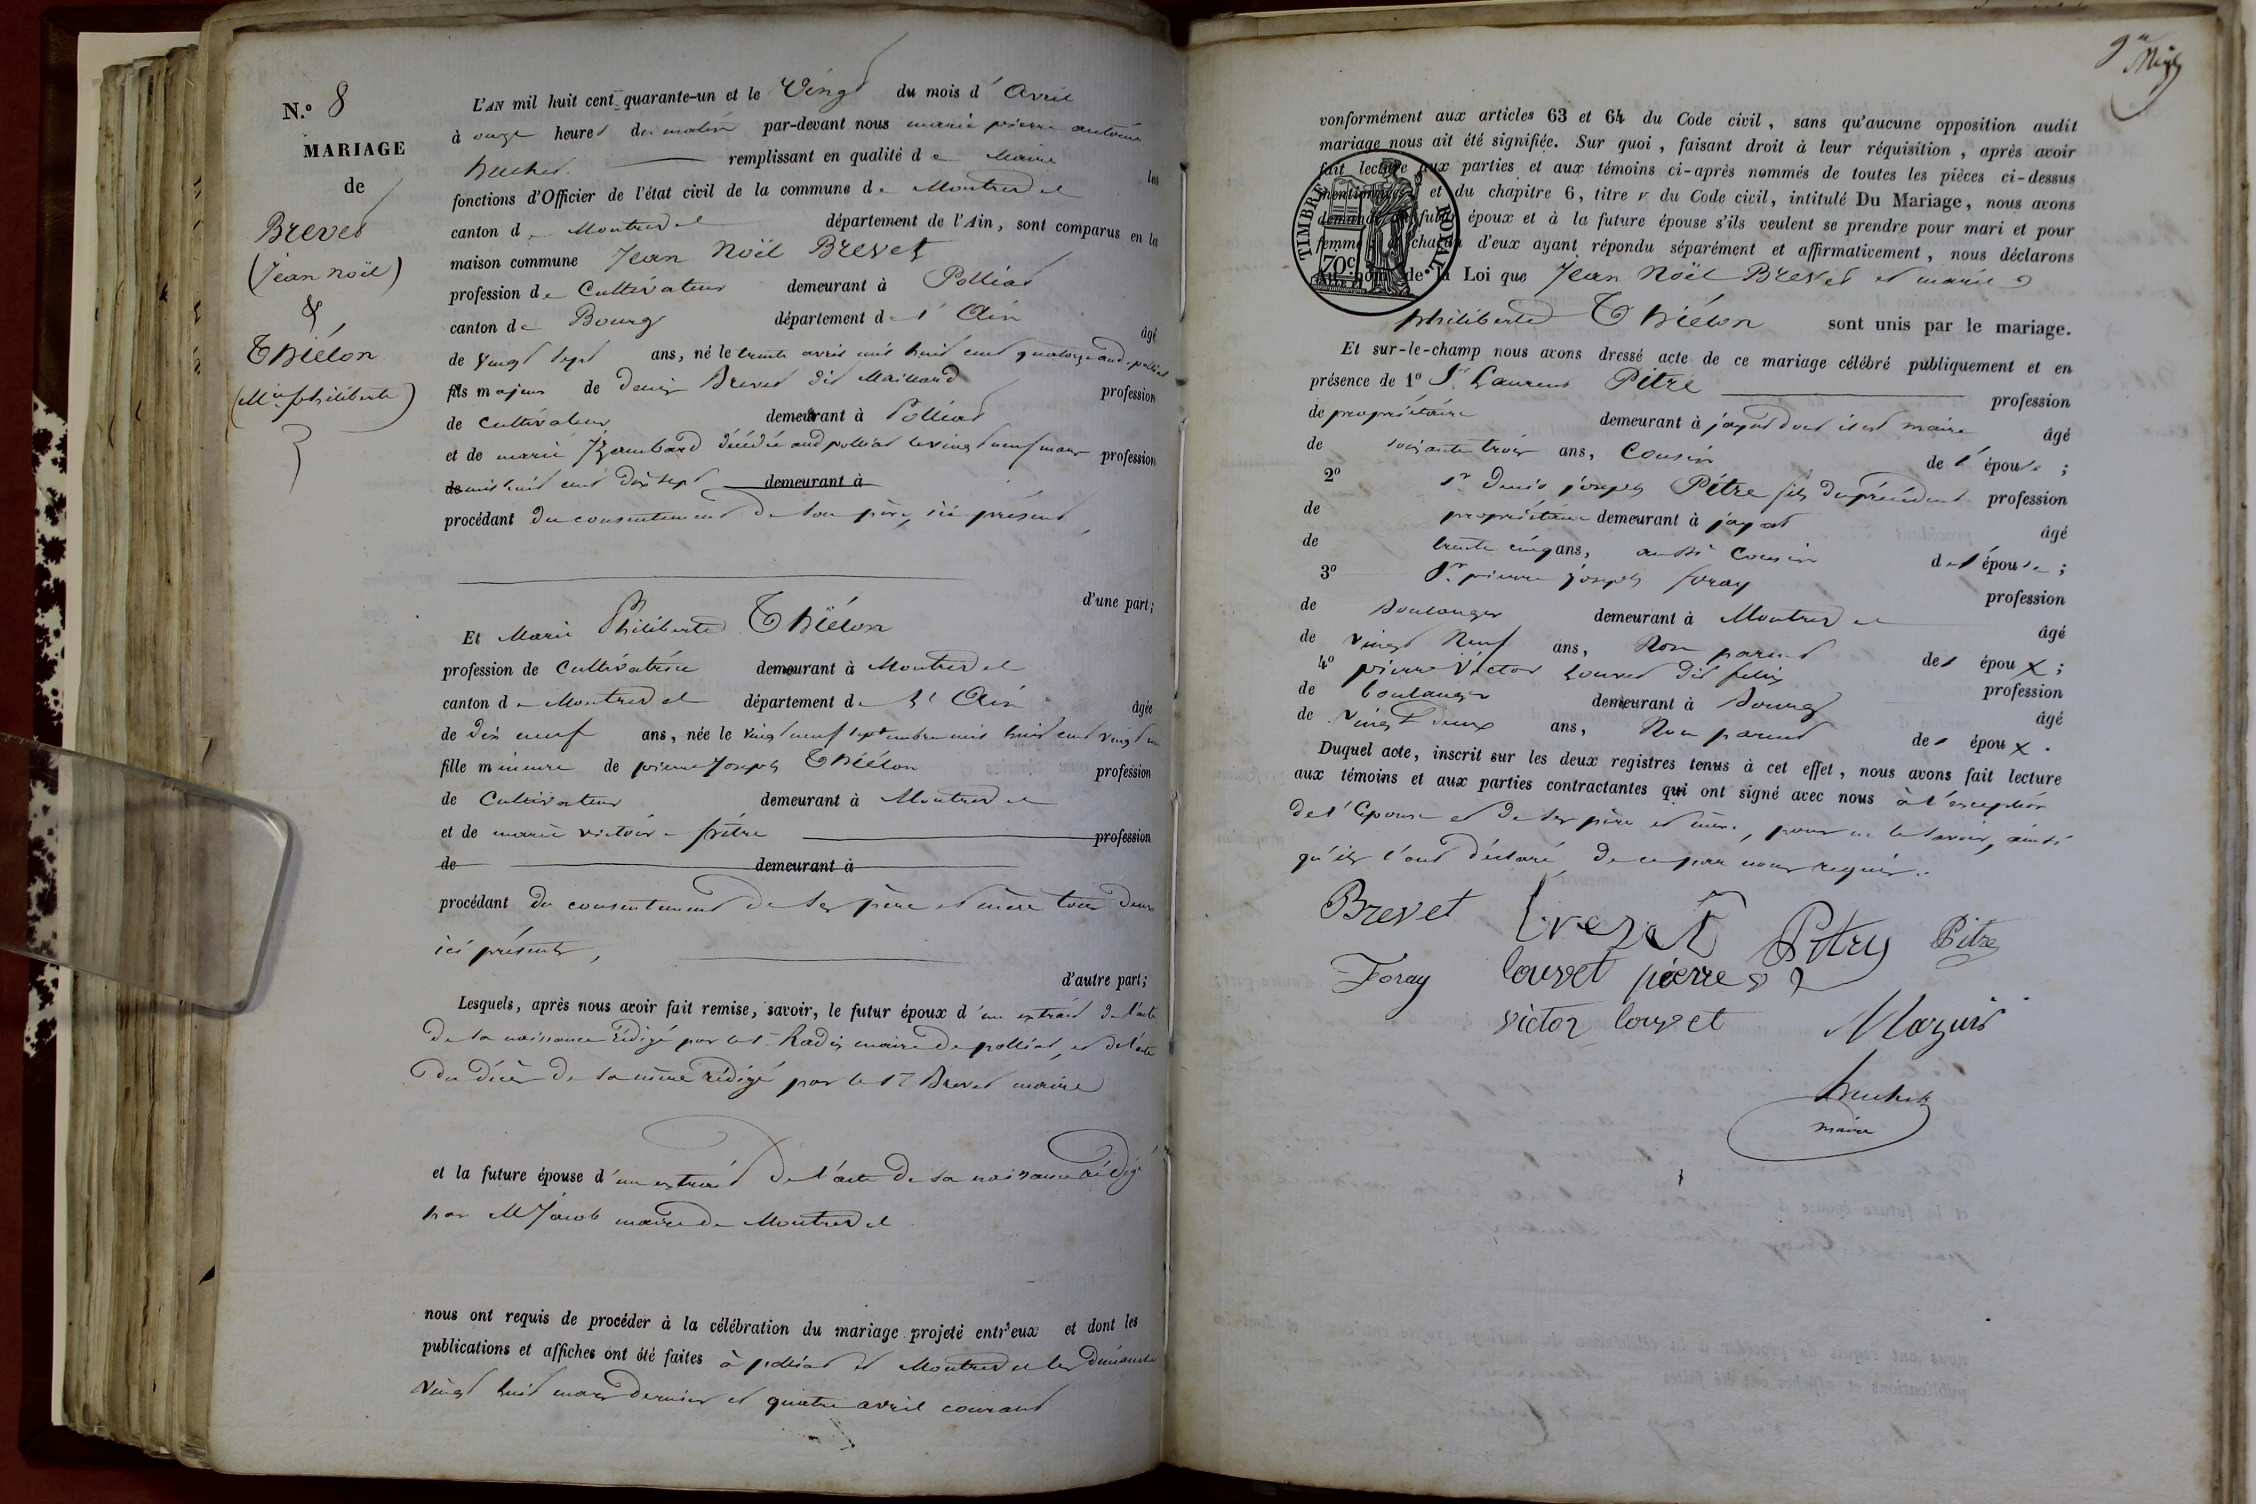 N.º 8
MARIAGE
de
Brevet
(Jean noël)
&
Thiélon
(Mie philiberte)
L'AN mil huit cent quarante-un et le Vingt du mois d'Avril
à onze heures du matin par-devant nous marie pierre antoine
huchet remplissant en qualité de Maire les
fonctions d'Officier de l'état civil de la commune de Montrevel
canton de Montrevel département de l'Ain, sont comparus en la
maison commune Jean Noël Brevet
profession de Cultivateur demeurant à Polliat
canton de Bourg département de l'Ain âgé
de Vingt sept ans, né le trente avril mil huit cent quatorze aud. polliat
fils majeur de denis Brevet dit Maillard profession
de cultivateur demeurant à Polliat
et de marie décédée aud polliat le vingt neuf mars profession
de mil huit cent dix sept demeurant à
procédant du consentement de son père, ici présent
d'une part;
Et Marie Philiberte Thiélon
profession de Cultivatrice demeurant à Montrevel
canton de Montrevel département de l'Ain âgée
de dix neuf ans, née le vingt neuf septembre mil huit cent vingt un
fille mineure de pierre Joseph Thiélon profession
de Cultivateur demeurant à Montrevel
et de marie victoire pitre profession
de demeurant à
procédant du consentement de ses père et mère tous deux
ici présents,
d'autre part;
Lesquels, après nous avoir fait remise, savoir, le futur époux d'un extrait de l'acte
de sa naissance rédigé par le Sr maire de polliat, et de l'acte
du décès de sa mère rédigé par le Sr Brevet maire
et la future épouse d'un extrait de l'acte de sa naissance rédigé
par M Jacob maire de Montrevel
nous ont requis de procéder à la célébration du mariage projeté entr'eux et dont les
publications et affiches ont été faites à polliat et Montrevel les dimanche
Vingt huit mars dernier et quatre avril courant
vonformément aux articles 63 et 64 du Code civil, sans qu'aucune opposition audit
mariage nous ait été signifiée. Sur quoi, faisant droit à leur réquisition, après avoir
fait lecture aux parties et aux témoins ci-après nommés de toutes les pièces ci-dessus
mentionnées et du chapitre 6, titre v du Code civil, intitulé Du Mariage, nous avons
demandé au futur époux et à la future épouse s'ils veulent se prendre pour mari et pour
femme, et chacun d'eux ayant répondu séparément et affirmativement, nous déclarons
au nom de la Loi que Jean Noël Brevet et marie
philiberte Thiélon sont unis par le mariage.
TIMBRE ROYAL
70c
Et sur-le-champ nous avons dressé acte de ce mariage célébré publiquement et en
présence de 1º Sr Laurent Pitre profession
de propriétaire demeurant à jayat dont il est maire âgé
de soixante trois ans, Cousin de l'épouse ;
2º Sr denis joseph Pitre fils du précédent profession
de propriétaire demeurant à jayat âgé
de trente cinq ans, aussi Cousin de l'épouse ;
3º Sr pierre joseph foray profession
de Boulanger demeurant à Montrevel âgé
de Vingt Neuf ans, Non parent des époux ;
4º pierre Victor Louvet dit profession
de boulanger demeurant à Bourg âgé
de vingt deux ans, Non parent des époux.
Duquel acte, inscrit sur les deux registres tenus à cet effet, nous avons fait lecture
aux témoins et aux parties contractantes qui ont signé avec nous à l'exception
de l'Epouse et de ses père et mère, pour ne le savoir, ainsi
qu'ils l'ont déclaré de ce par nous requis.
Brevet brevet Pitre Pitre
Foray louvet pierre
victor louvet Mazuir
huchet
maire